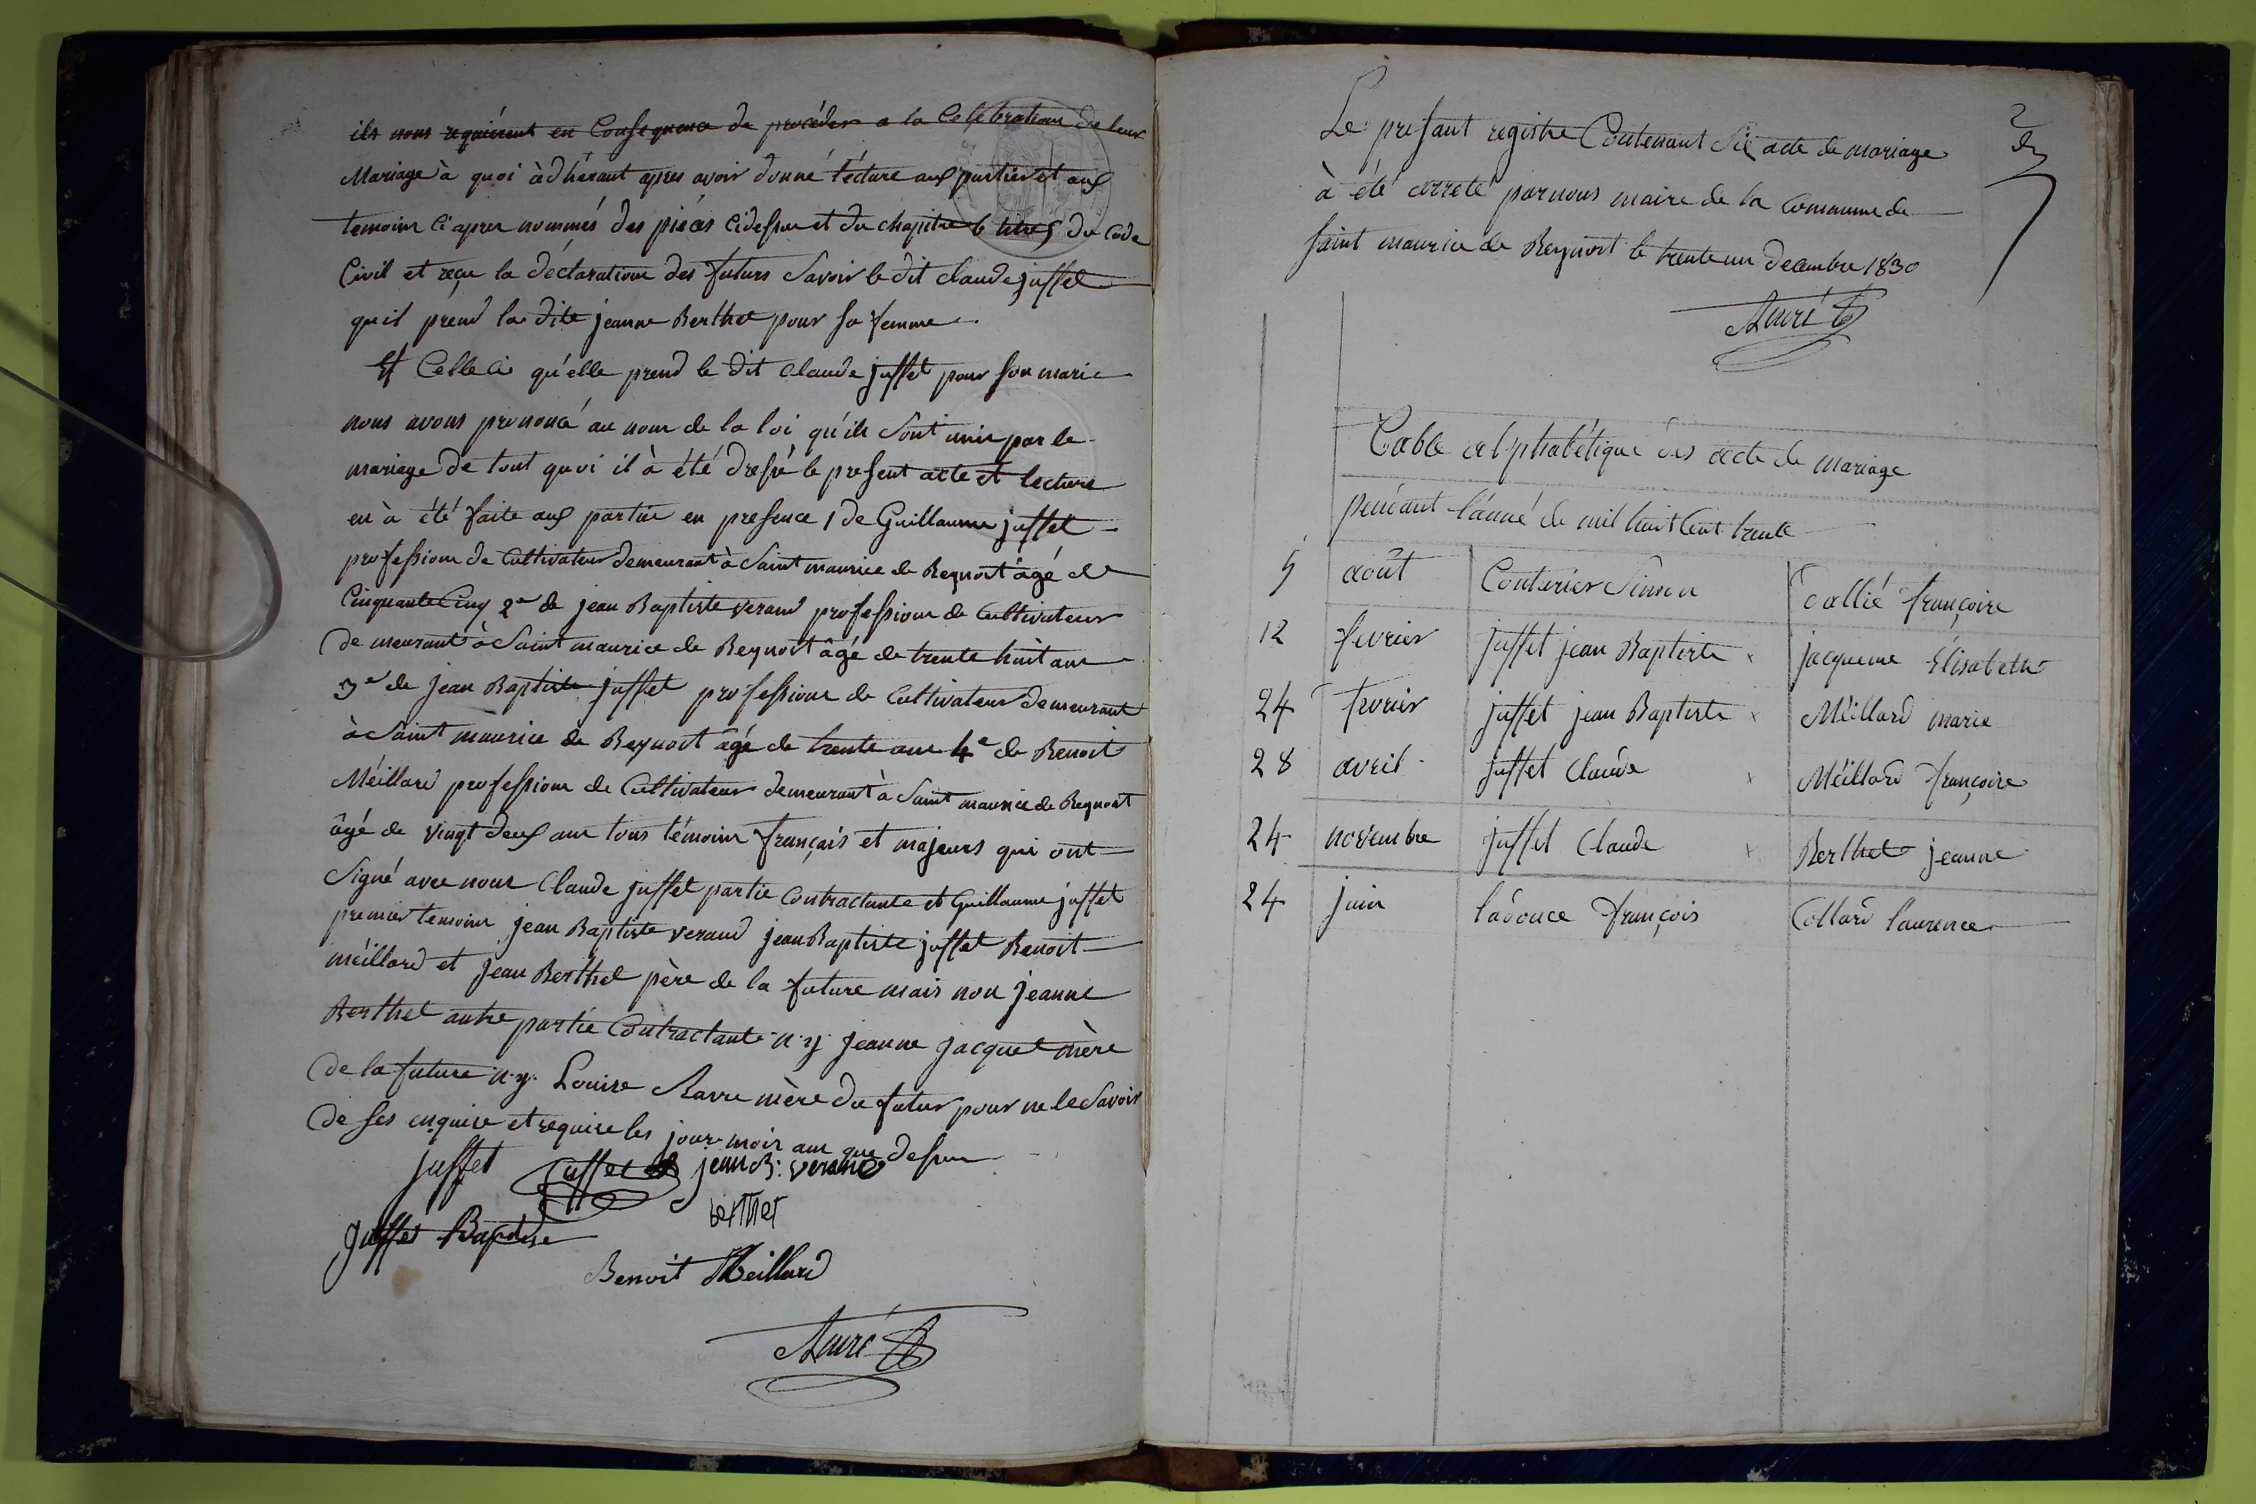 ils nous requièrent en Consequence de procéder a la Celébration de leur
Mariage à quoi àdhérant apres avoir donné lécture aux parties et aux
temoins Ci apres nommés des piéces Cidessus et du chapitre 6 titre 5 du Code
Civil et reçu la déclaration des futurs Savoir le dit Claude juffet
qu'il prend la dite jeanne Berthet pour sa femme
Et Celle Ci qu'élle prend le dit Claude juffet pour son marie
nous avons prononcé au nom de la loi qu'ils Sont unis par le
mariage de tout quoi il à été dressé le present acte et lecture
en à été faite aux parties en presence 1 de Guillaume juffet
profession de Cultivateur demeurant à Saint maurice de Beynost âgé de
Cinquante Cinq 2e de jean Baptiste verand profession de Cultivateur
demeurant à Saint maurice de Beynost âgé de trente huit ans
3e de jean Baptiste juffet profession de Cultivateur demeurant
à Saint maurice de Beynost âgé de trente ans 4e de Benoit
Méillard profession de Cultivateur demeurant à Saint maurice de Beynost
âgé de vingt deux ans tous témoins français et majeurs qui ont
Signé avec nous Claude juffet partie Contractante et Guillaume juffet
premier temoins jean Baptiste verand jean Baptiste juffet Benoit
méillard et jean Berthet père de la future mais non jeanne
Berthet autre partie Contractante n'y jeanne jacquet mère
de la future n'y Louise Ravre mère du futur pour ne le Savoir
de ses enquise et requise les jour mois ans que dessus
juffet juffet jean B. verand
berthet
juffet Baptiste
Benoit Meillard
Auré
2
Le presant registre Contenant Six acte de mariage
à été arreté par nous maire de la Commune de
Saint maurice de Beynost le trente un decembre 1830
Auré
Table alphabétique des acte de mariage
pendant l'anné de mil huit Cent trente
5 août Couturier Simon dallié françoise
12 fevrier juffet jean Baptiste x jacqueme Élisabeth
24 fevrier juffet jean Baptiste x Méillard marie
28 avril juffet Claude x Méillard françoise
24 novembre juffet Claude x Berthet jeanne
24 juin ladouce françois Collard laurence